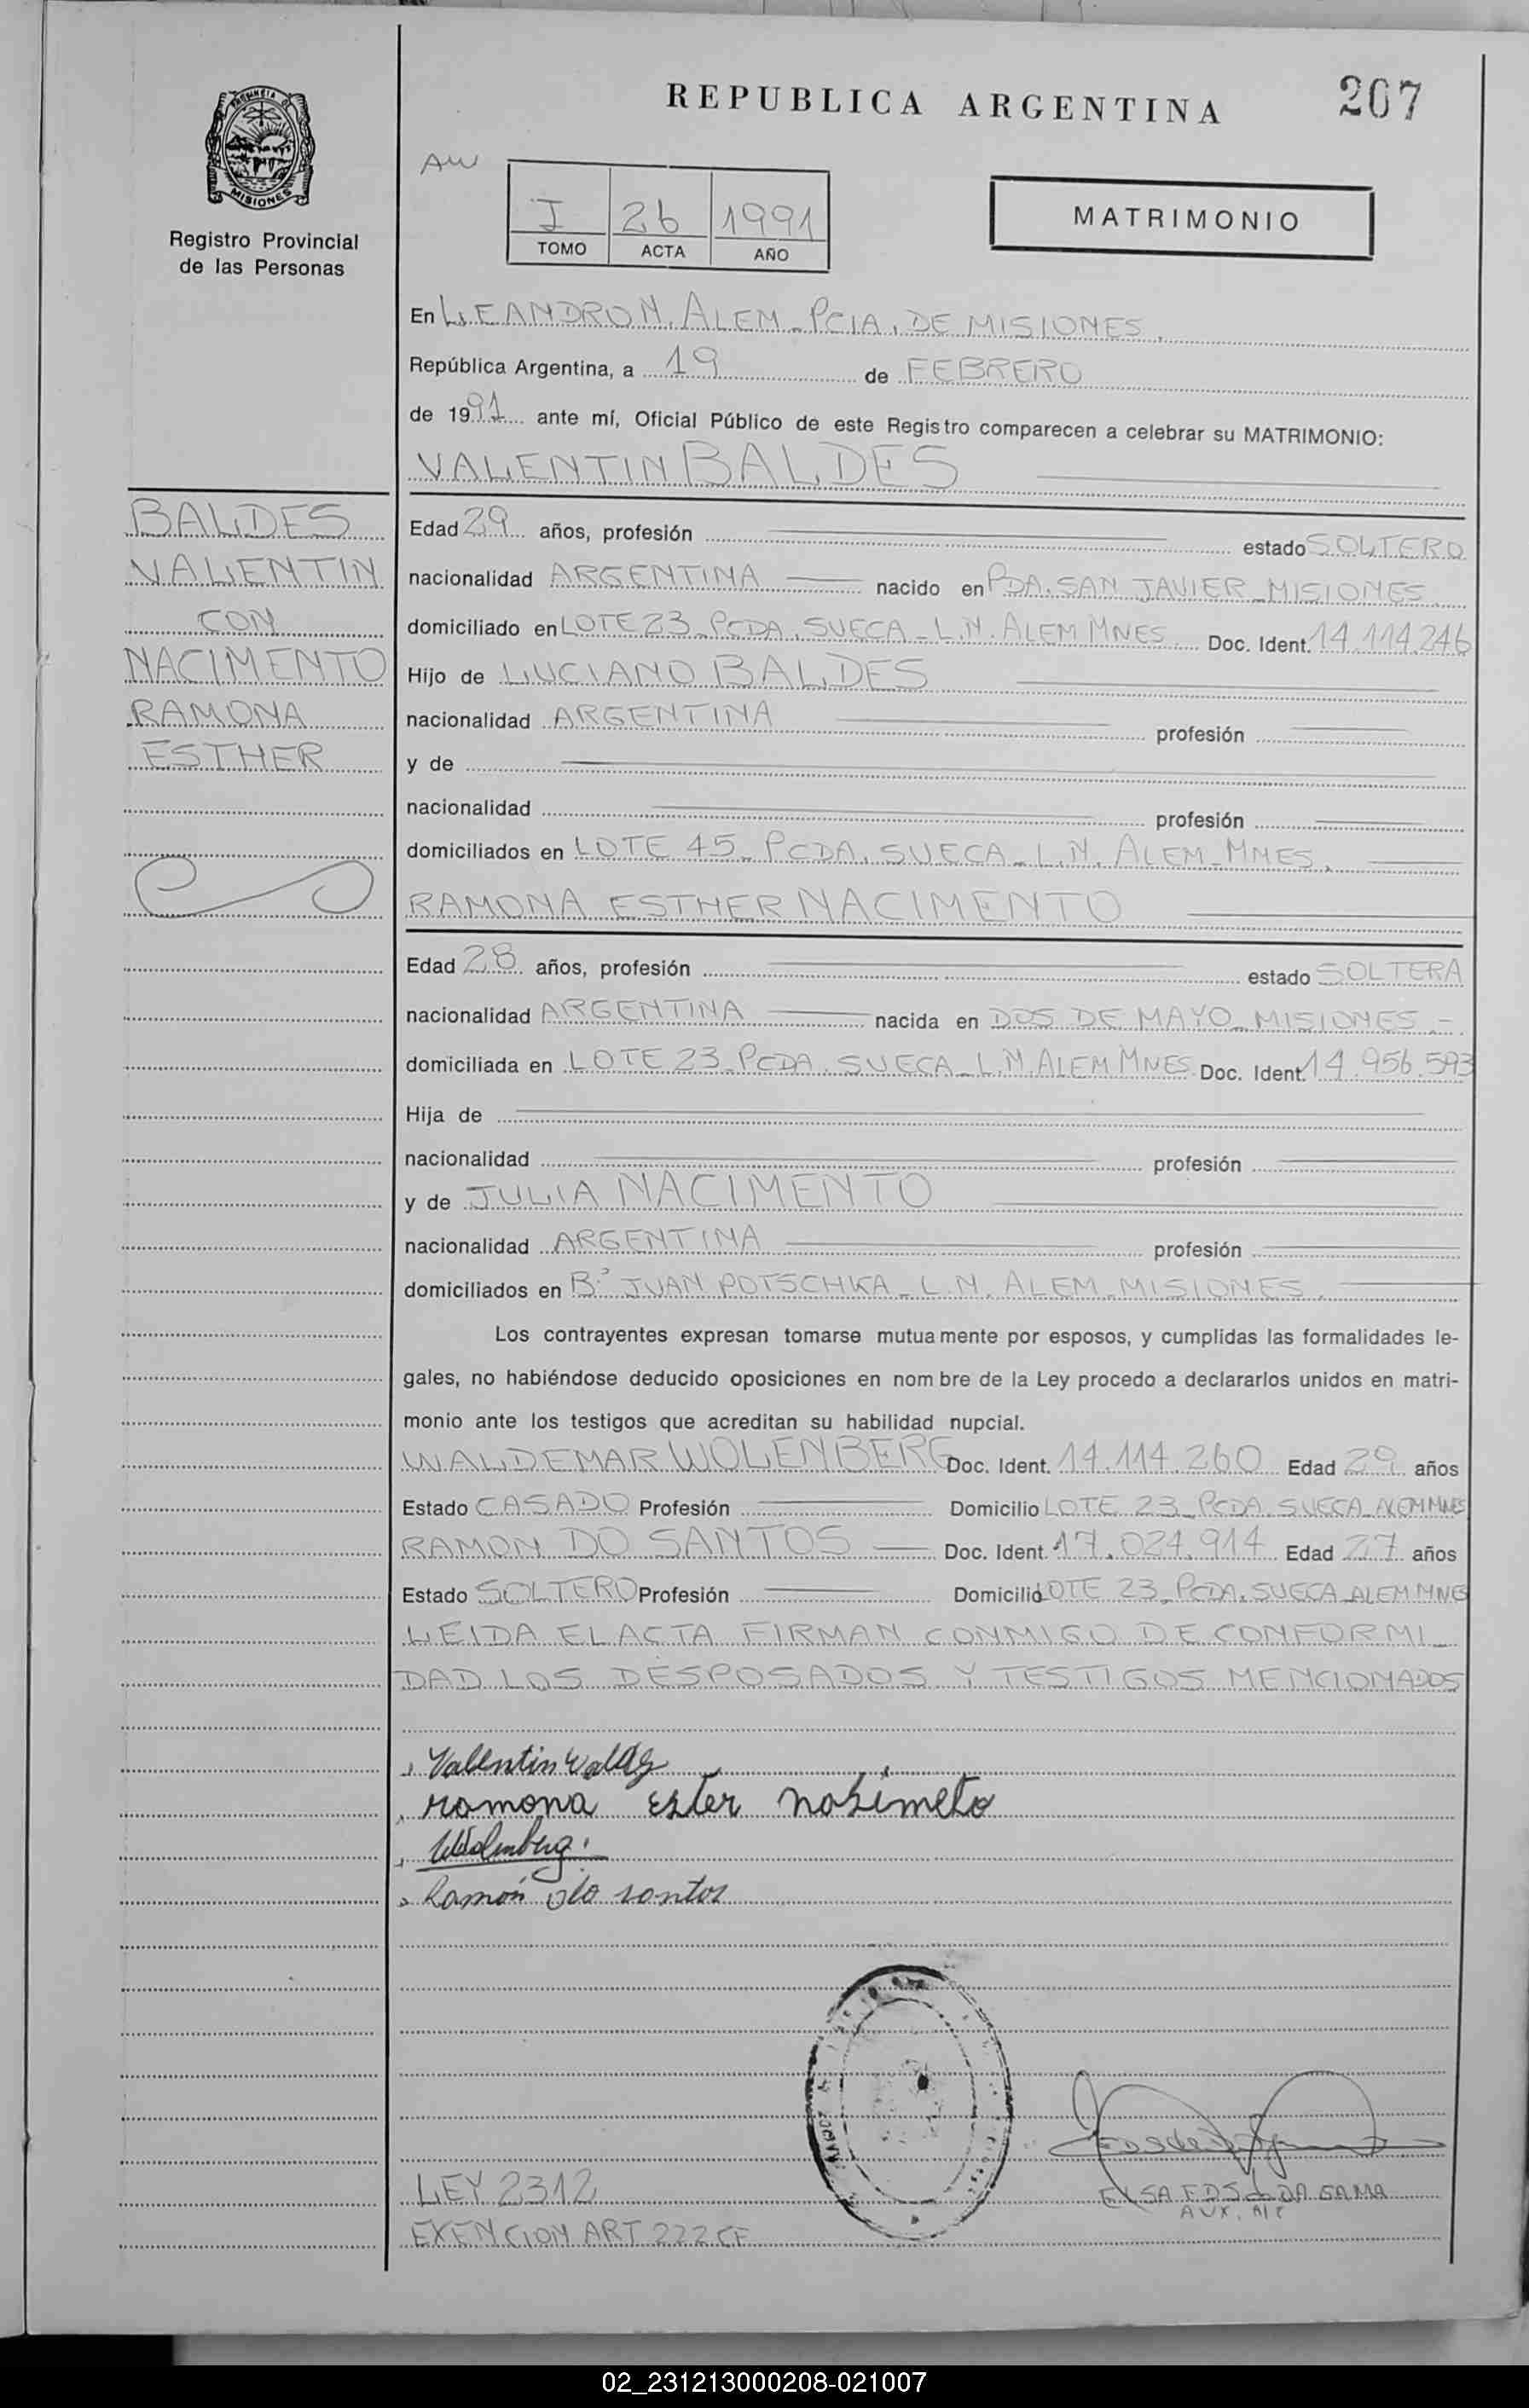 REPUBLICA ARGENTINA
207
PROVINCIA DE
MISIONES
Registro Provincial
de las Personas
AW
I 26 1991
TOMO ACTA AÑO
MATRIMONIO
En LEANDRO N. ALEM - PCIA. DE MISIONES
República Argentina, a 19 de FEBRERO
de 1991 ante mí, Oficial Público de este Registro comparecen a celebrar su MATRIMONIO:
VALENTIN BALDES
BALDES
VALENTIN
CON
NACIMENTO
RAMONA
ESTHER
Edad 29 años, profesión estado SOLTERO
nacionalidad ARGENTINA nacido en PDA. SAN JAVIER - MISIONES
domiciliado en LOTE 23 - PCDA. SUECA - L.N. ALEM MNES Doc. Ident. 14.114.246
Hijo de LUCIANO BALDES
nacionalidad ARGENTINA profesión
y de
nacionalidad profesión
domiciliados en LOTE 45 - PCDA. SUECA - L.N. ALEM - MNES.
RAMONA ESTHER NACIMENTO
Edad 28 años, profesión estado SOLTERA
nacionalidad ARGENTINA nacida en DOS DE MAYO - MISIONES.-
domiciliada en LOTE 23 - PCDA. SUECA - L.N. ALEM MNES Doc. Ident. 14.956.593
Hija de
nacionalidad profesión
y de JULIA NACIMENTO
nacionalidad ARGENTINA profesión
domiciliados en Bº JUAN POTSCHKA - L.N. ALEM - MISIONES.
Los contrayentes expresan tomarse mutuamente por esposos, y cumplidas las formalidades le-
gales, no habiéndose deducido oposiciones en nombre de la Ley procedo a declararlos unidos en matri-
monio ante los testigos que acreditan su habilidad nupcial.
WALDEMAR WOLENBERG Doc. Ident. 14.114.260 Edad 29 años
Estado CASADO Profesión Domicilio LOTE 23 - PCDA. SUECA - ALEM MNES
RAMON DO SANTOS Doc. Ident. 17.021.914 Edad 27 años
Estado SOLTERO Profesión Domicilio LOTE 23 - PCDA. SUECA - ALEM MNES
LEIDA EL ACTA FIRMAN CONMIGO DE CONFORMI-
DAD LOS DESPOSADOS Y TESTIGOS MENCIONADOS
Valentin Valdes
ramona ester nosimeto
WWolenberg.
Ramón do santos
ELSA F DS de DA GAMA
LEY 2312
EXENCION ART 222 CF
02_231213000208-021007